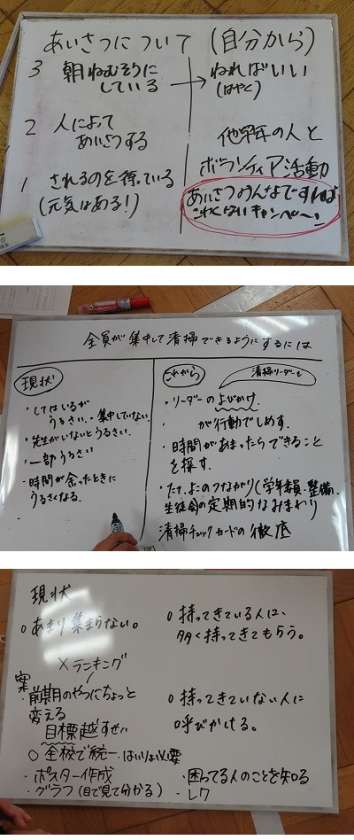 あいさつについて (自分から)
3 朝ねむそうに
している
→ ねればいい
(はやく)
2 人によって
あいさつする
1 されるのを待っている
(元気はある!)
他学年の人と
ボランティア活動
あいさつみんなですれば
こわくないキャンペーン
全員が集中して清掃できるようにするには
現状
・してはいるが
うるさい・集中していない
・先生がいないとうるさい
・一部うるさい
・時間が余ったときに
うるさくなる。
これから
清掃リーダーも
・リーダーのよびかけ
・ が行動でしめす。
・時間があまったらできること
を探す。
・たて、よこのつながり(学年委員・整備・
生徒会の定期的なみまわり
清掃チェックカードの徹底
現状
○あまり集まらない。
×ランキング
案
・前期のやつにちょっと
変える
目標越すぜ!!
○全校で統一
・ポスター作成
・グラフ(目で見て分かる)
○持ってきている人は、
多く持ってきてもらう。
○持ってきていない人に
呼びかける。
・困ってる人のことを知る
・レク